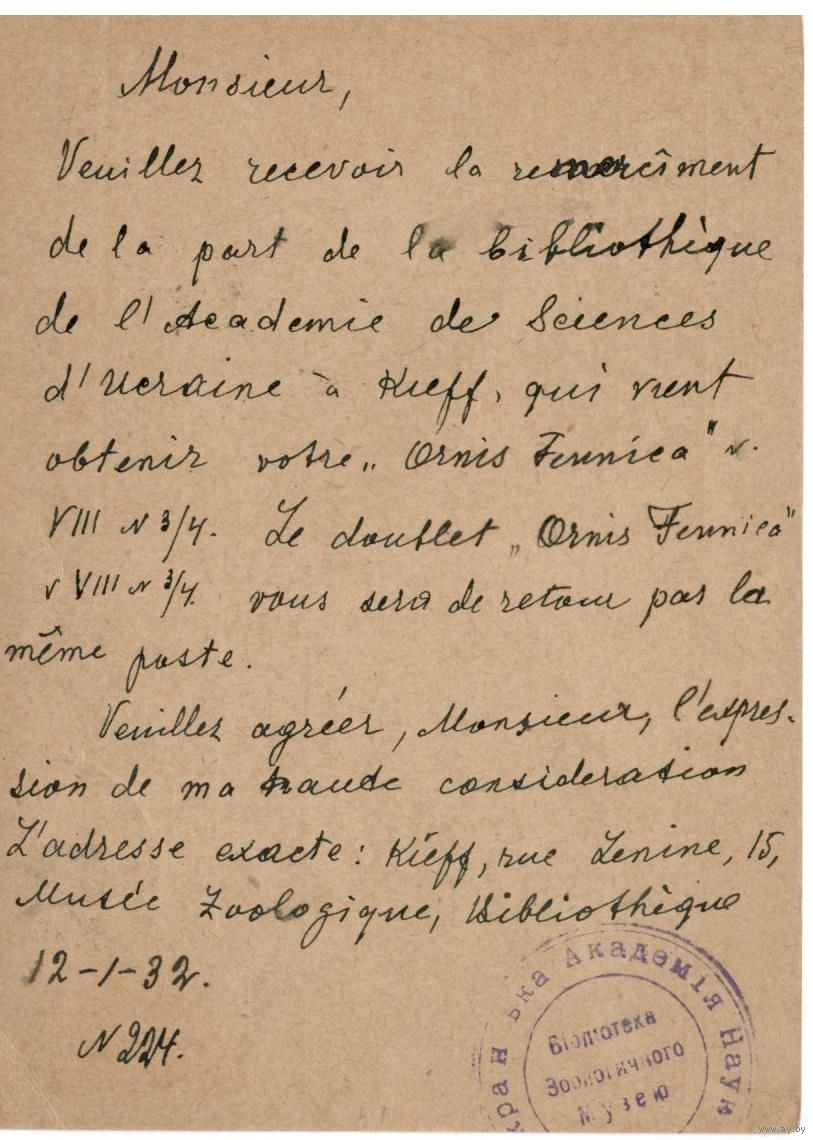 Monsieur,
Veuillez recevoir la remercîment
de la part de la bibliothèque
de l'Academie de Sciences
d'Ucraine à Kieff, qui vient
obtenir votre „Ornis Fennica" v.
VIII N 3/4. Le doublet „Ornis Fennica"
v VIII N 3/4. vous sera de retour par la
même poste.
Veuillez agréer, Monsieur, l'expres-
sion de ma haute consideration
L'adresse exacte: Kieff, rue Lenine, 15,
Musée Zoologique, Bibliothèque
12-1-32.
N 224.
кран ька Академія Наук
Бібліотека
Зоологичного
Музею
www.ay.by